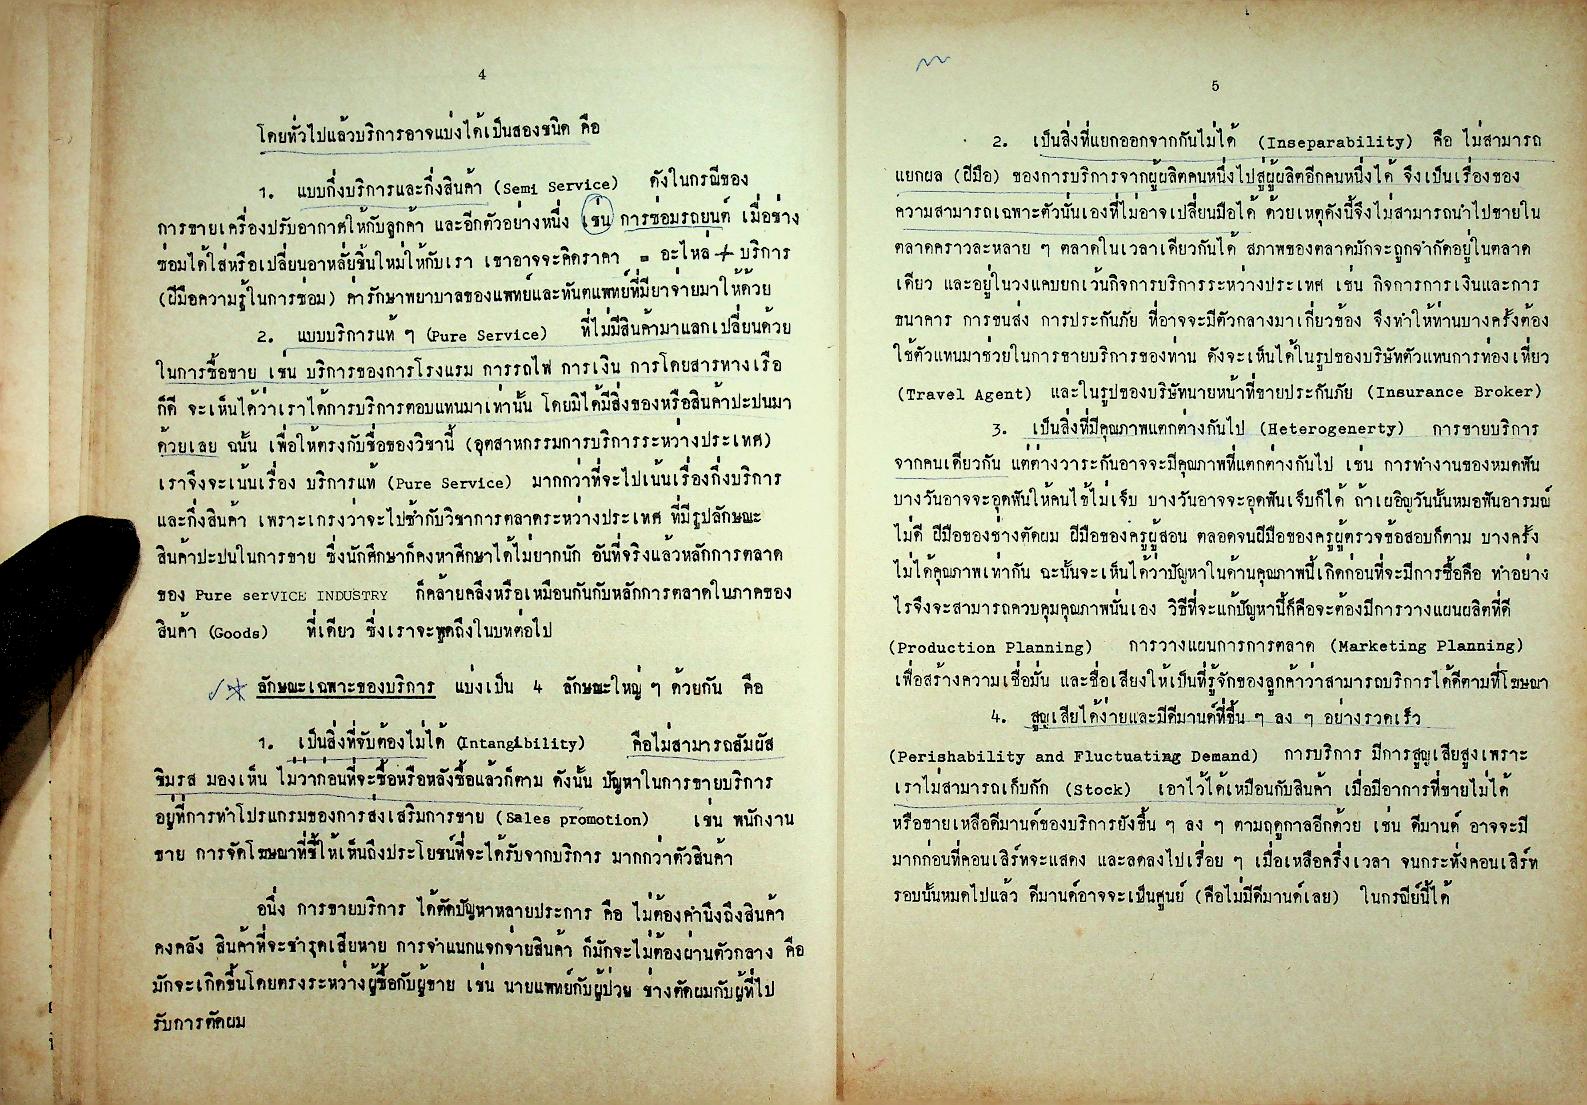 4
โดยทั่วไปแล้วบริการอาจแบ่งได้เป็นสองชนิด คือ
1. แบบกึ่งบริการและกึ่งสินค้า (Semi Service) ดังในกรณีของ
การขายเครื่องปรับอากาศให้กับลูกค้า และอีกตัวอย่างหนึ่ง เช่น การซ่อมรถยนต์ เมื่อช่าง
ซ่อมได้ใส่หรือเปลี่ยนอาหลั่ยชิ้นใหม่ให้กับเรา เขาอาจจะคิดราคา = อะไหล่ + บริการ
(ฝีมือความรู้ในการซ่อม) ค่ารักษาพยาบาลของแพทย์และทันตแพทย์ที่มียาจ่ายมาให้ด้วย
2. แบบบริการแท้ ๆ (Pure Service) ที่ไม่มีสินค้ามาแลกเปลี่ยนด้วย
ในการซื้อขาย เช่น บริการของการโรงแรม การรถไฟ การเงิน การโดยสารทางเรือ
ก็ดี จะเห็นได้ว่าเราได้การบริการตอบแทนมาเท่านั้น โดยมิได้มีสิ่งของหรือสินค้าปะปนมา
ด้วยเลย ฉนั้น เพื่อให้ตรงกับชื่อของวิชานี้ (อุตสาหกรรมการบริการระหว่างประเทศ)
เราจึงจะเน้นเรื่อง บริการแท้ (Pure Service) มากกว่าที่จะไปเน้นเรื่องกึ่งบริการ
และกึ่งสินค้า เพราะเกรงว่าจะไปซ้ำกับวิชาการตลาดระหว่างประเทศ ที่มีรูปลักษณะ
สินค้าปะปนในการขาย ซึ่งนักศึกษาก็คงหาศึกษาได้ไม่ยากนัก อันที่จริงแล้วหลักการตลาด
ของ Pure serVICE INDUSTRY ก็คล้ายคลึงหรือเหมือนกันกับหลักการตลาดในภาคของ
สินค้า (Goods) ที่เดียว ซึ่งเราจะพูดถึงในบทต่อไป
ลักษณะเฉพาะของบริการ แบ่งเป็น 4 ลักษณะใหญ่ ๆ ด้วยกัน คือ
1. เป็นสิ่งที่จับต้องไม่ได้ (Intangibility) คือไม่สามารถสัมผัส
ชิมรส มองเห็น ไม่ว่าก่อนที่จะซื้อหรือหลังซื้อแล้วก็ตาม ดังนั้น ปัญหาในการขายบริการ
อยู่ที่การทำโปรแกรมของการส่งเสริมการขาย (Sales promotion) เช่น พนักงาน
ขาย การจัดโฆษณาที่ชี้ให้เห็นถึงประโยชน์ที่จะได้รับจากบริการ มากกว่าตัวสินค้า
อนึ่ง การขายบริการ ได้ตัดปัญหาหลายประการ คือ ไม่ต้องคำนึงถึงสินค้า
คงคลัง สินค้าที่จะชำรุดเสียหาย การจำแนกแจกจ่ายสินค้า ก็มักจะไม่ต้องผ่านตัวกลาง คือ
มักจะเกิดขึ้นโดยตรงระหว่างผู้ซื้อกับผู้ขาย เช่น นายแพทย์กับผู้ป่วย ช่างตัดผมกับผู้ที่ไป
รับการตัดผม
5
2. เป็นสิ่งที่แยกออกจากกันไม่ได้ (Inseparability) คือ ไม่สามารถ
แยกผล (ฝีมือ) ของการบริการจากผู้ผลิตคนหนึ่งไปสู่ผู้ผลิตอีกคนหนึ่งได้ จึงเป็นเรื่องของ
ความสามารถเฉพาะตัวนั่นเองที่ไม่อาจเปลี่ยนมือได้ ด้วยเหตุดังนี้จึงไม่สามารถนำไปขายใน
ตลาดคราวละหลาย ๆ ตลาดในเวลาเดียวกันได้ สภาพของตลาดมักจะถูกจำกัดอยู่ในตลาด
เดียว และอยู่ในวงแคบยกเว้นกิจการบริการระหว่างประเทศ เช่น กิจการการเงินและการ
ธนาคาร การขนส่ง การประกันภัย ที่อาจจะมีตัวกลางมาเกี่ยวข้อง จึงทำให้ท่านบางครั้งต้อง
ใช้ตัวแทนมาช่วยในการขายบริการของท่าน ดังจะเห็นได้ในรูปของบริษัทตัวแทนการท่องเที่ยว
(Travel Agent) และในรูปของบริษัทนายหน้าที่ขายประกันภัย (Insurance Broker)
3. เป็นสิ่งที่มีคุณภาพแตกต่างกันไป (Heterogenerty) การขายบริการ
จากคนเดียวกัน แต่ต่างวาระกันอาจจะมีคุณภาพที่แตกต่างกันไป เช่น การทำงานของหมดฟัน
บางวันอาจจะอุดฟันให้คนไข้ไม่เจ็บ บางวันอาจจะอุดฟันเจ็บก็ได้ ถ้าเผอิญวันนั้นหมอฟันอารมณ์
ไม่ดี ฝีมือของช่างตัดผม ฝีมือของครูผู้สอน ตลอดจนฝีมือของครูผู้ตรวจข้อสอบก็ตาม บางครั้ง
ไม่ได้คุณภาพเท่ากัน ฉะนั้นจะเห็นได้ว่าปัญหาในด้านคุณภาพนี้เกิดก่อนที่จะมีการซื้อคือ ทำอย่าง
ไรจึงจะสามารถควบคุมคุณภาพนั่นเอง วิธีที่จะแก้ปัญหานี้ก็คือจะต้องมีการวางแผนผลิตที่ดี
(Production Planning) การวางแผนการการตลาด (Marketing Planning)
เพื่อสร้างความเชื่อมั่น และชื่อเสียงให้เป็นที่รู้จักของลูกค้าว่าสามารถบริการได้ดีตามที่โฆษณา
4. สูญเสียได้ง่ายและมีดีมานด์ที่ขึ้น ๆ ลง ๆ อย่างรวดเร็ว
(Perishability and Fluctuating Demand) การบริการ มีการสูญเสียสูงเพราะ
เราไม่สามารถเก็บกัก (Stock) เอาไว้ได้เหมือนกับสินค้า เมื่อมีอาการที่ขายไม่ได้
หรือขายเหลือดีมานด์ของบริการยังขึ้น ๆ ลง ๆ ตามฤดูกาลอีกด้วย เช่น ดีมานด์ อาจจะมี
มากก่อนที่คอนเสิร์ทจะแสดง และลดลงไปเรื่อย ๆ เมื่อเหลือครึ่งเวลา จนกระทั่งคอนเสิร์ท
รอบนั้นหมดไปแล้ว ดีมานด์อาจจะเป็นศูนย์ (คือไม่มีดีมานด์เลย) ในกรณีย์นี้ได้